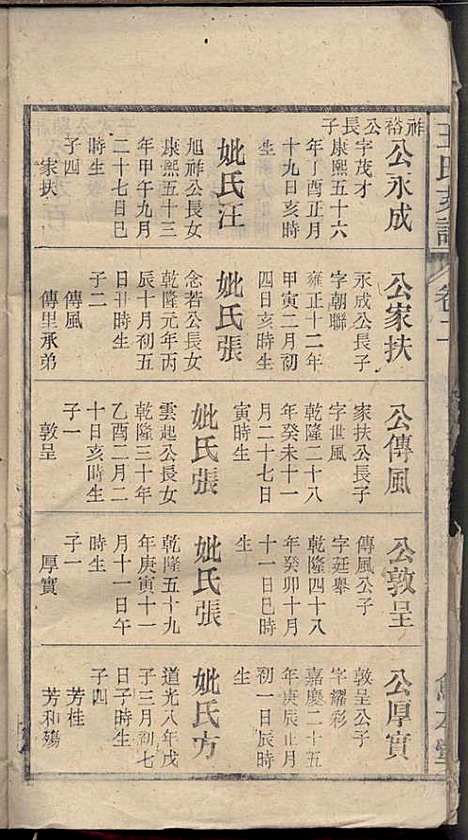 公永成
祥裕公長子
字茂才
康熙五十六
年丁酉正月
十九日亥時
妣氏汪
旭祥公長女
康熙五十三
年甲午九月
二十七日巳
時生
子四
家扶
公家扶
永成公長子
字朝聯
雍正十二年
甲寅二月初
四日亥時生
妣氏張
念若公長女
乾隆元年丙
辰十月初五
日丑時生
子二
傳風
傳里承弟
公傳風
家扶公長子
字世風
乾隆二十八
年癸未十一
月二十七日
寅時生
妣氏張
雲起公長女
乾隆三十年
乙酉二月二
十日亥時生
子一
敦呈
公敦呈
傳風公子
字廷舉
乾隆四十八
年癸卯十月
十一日巳時
生
妣氏張
乾隆五十九
年庚寅十一
月十一日午
時生
子一
厚實
公厚實
敦呈公子
字耀彩
嘉慶二十五
年庚辰正月
初一日辰時
生
妣氏方
道光八年戊
子三月初七
日子時生
子四
芳桂
芳和殤
卷二